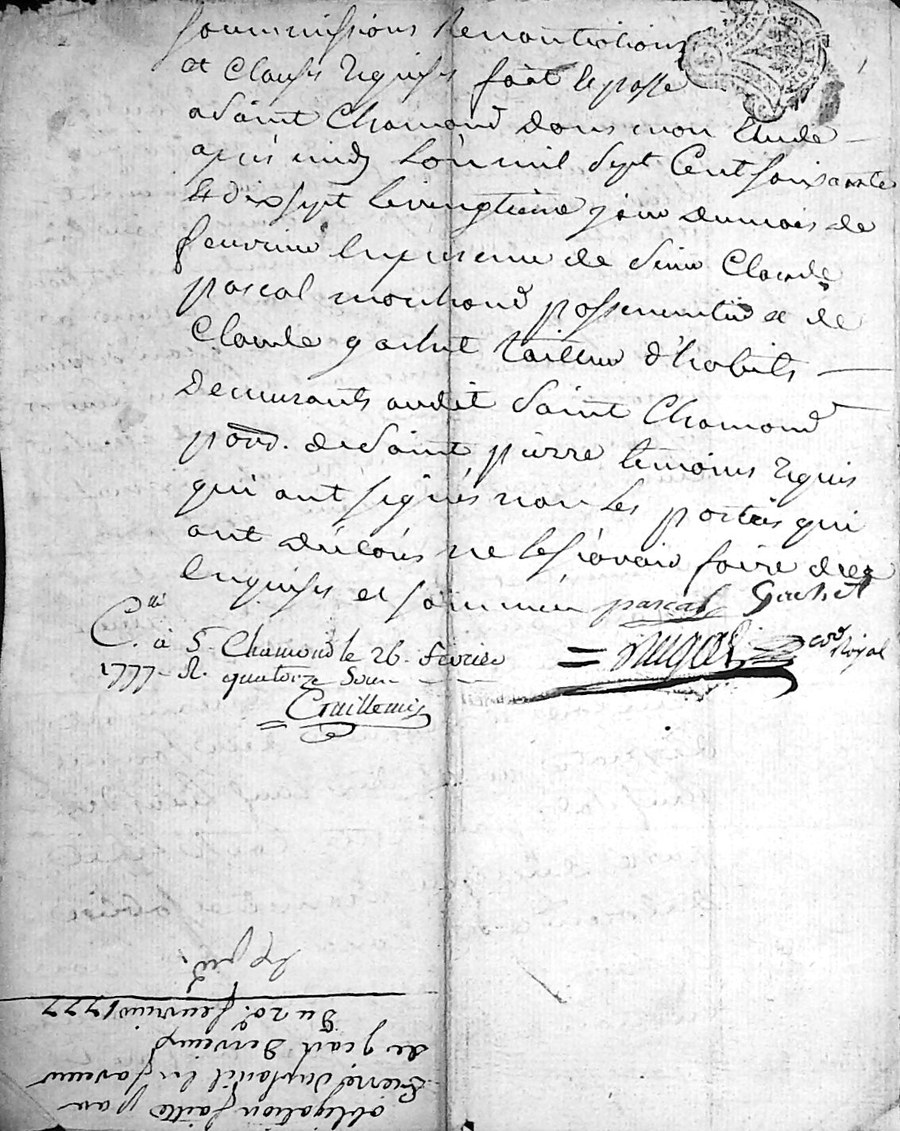 soummissions Renontiations
et clauses requises fait et passé
a Saint Chamond dans mon Etude
après midy L'an mil sept Cent soixante
& dix sept le vingtième jour du mois de
feuvrier en presence de Sieur Claude
pascal marchand passementier & de
Claude gachet tailleur d'habits
demeurants audit Saint Chamond
parr. de Saint pierre temoins requis
qui ont signés non les parties qui
ont déclarés ne le sçavoir faire de ce
enquises et sommées pascal Gachet
Royal
C. à St. Chamond le 26. février
1777. R. quatorze sous
obligation faitte par
Pierre en faveur
de jean
Du 20. feuvrier 1777